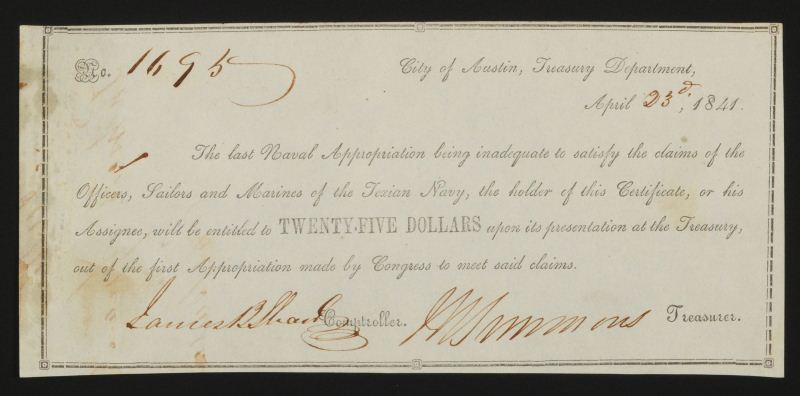 No. 1695
City of Austin, Treasury Department,
April 23d, 1841.
The last Naval Appropriation being inadequate to satisfy the claims of the
Officers, Sailors and Marines of the Texian Navy, the holder of this Certificate, or his
Assignee, will be entitled to TWENTY-FIVE DOLLARS upon its presentation at the Treasury,
out of the first Appropriation made by Congress to meet said claims.
James B Shaw Comptroller. Simmons Treasurer.